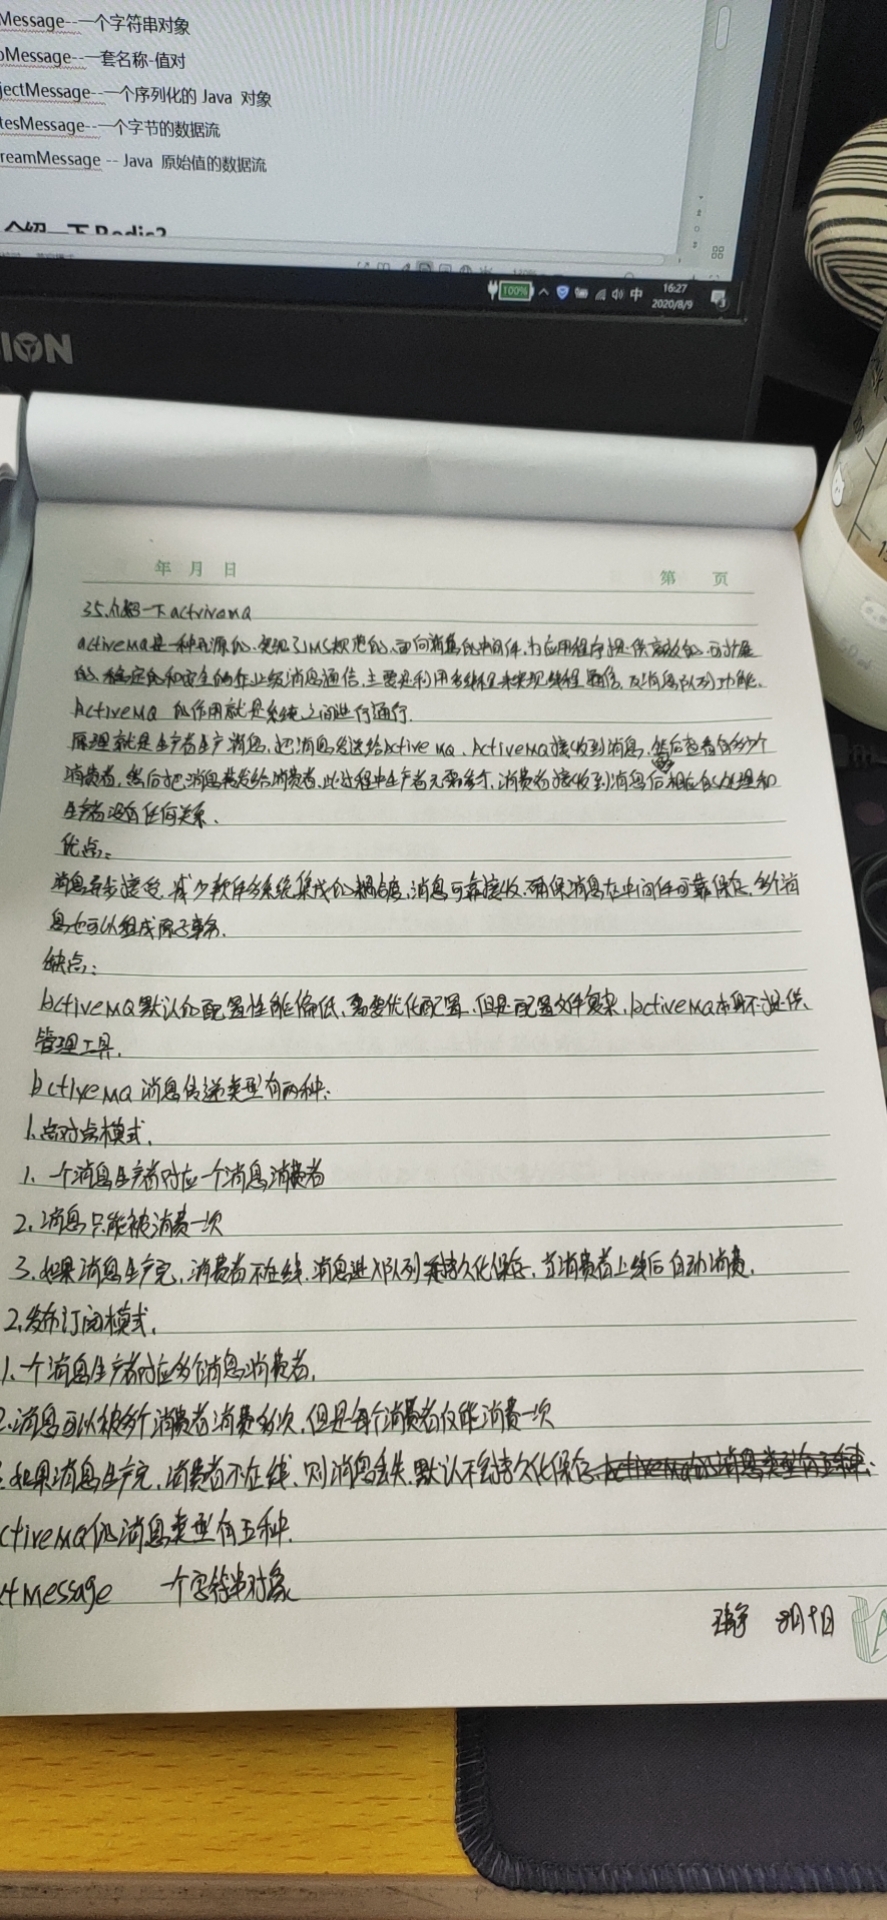 Message--一个字符串对象
pMessage--一套名称-值对
jectMessage--一个序列化的 Java 对象
tesMessage--一个字节的数据流
reamMessage -- Java 原始值的数据流
介绍一下 Redis?
100%
中
16:27
2020/8/9
3
ION
年 月 日
第 页
35.介绍一下activemQ
activeMQ是一种开源的,实现了JMS规范的,面向消息的中间件,为应用程序提供高效的、可扩展
的、稳定的和安全的企业级消息通信,主要是利用多线程来实现线程通信,及消息队列功能.
ActiveMQ 的作用就是系统之间进行通行.
原理就是生产者生产消息,把消息发送给ActiveMQ、ActiveMQ接收到消息,然后查看有多少个
消费者,然后把消息转发给消费者,此过程中生产者无需参与,消费者接收到消息后相应的处理和
生产者没有任何关系.
优点:
消息异步接受,减少软件多系统集成的耦合度,消息可靠接收,确保消息在中间件可靠保存,多个消
息也可以组成原子事务.
缺点:
ActiveMQ默认的配置性能偏低,需要优化配置,但是配置文件复杂,ActiveMQ本身不提供
管理工具.
ActiveMQ 消息传递类型有两种:
1.点对点模式.
1、一个消息生产者对应一个消息消费者
2、消息只能被消费一次
3.如果消息生产完,消费者不在线,消息进入队列 持久化保存,当消费者上线后自动消费.
2.发布订阅模式.
1.一个消息生产者对应多个消息消费者.
2.消息可以被多个消费者消费多次,但是每个消费者仅能消费一次
如果消息生产完,消费者不在线,则消息丢失,默认不会持久化保存
ctiveMQ的消息类型有五种.
xtMessage 一个字符串对象
8月10日